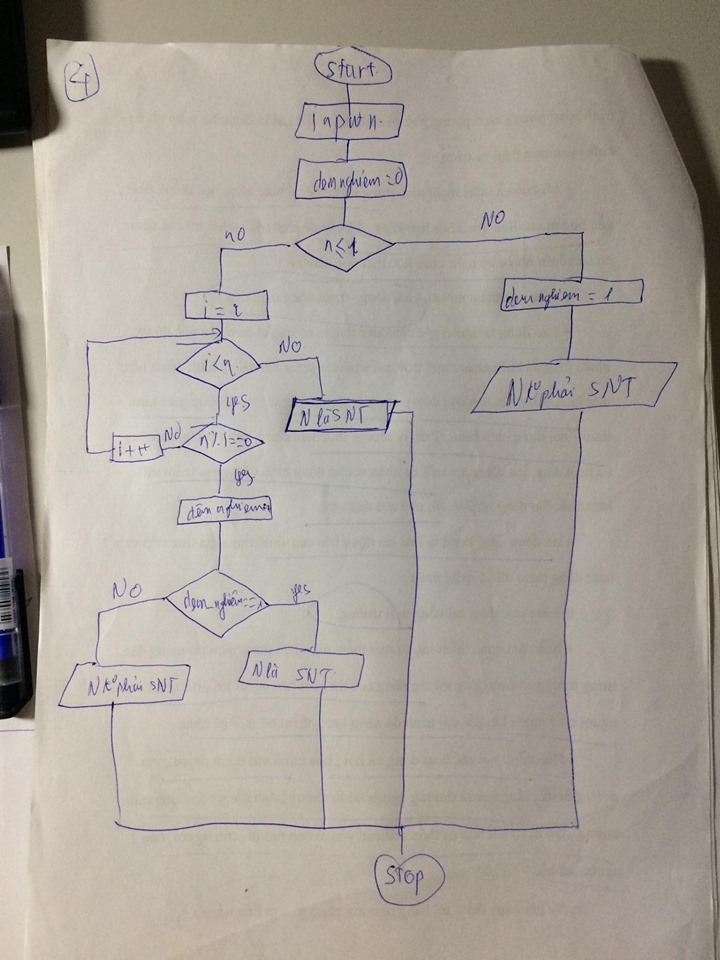 4
Start
Input n.
demnghiem=0
n≤1
nO
NO
i = 2
demnghiem = 1
i<n
NO
yes
N ko phải SNT
N là SNT
n%i==0
NO
i++
yes
demnghiem
demnghiem==1
NO
yes
N ko phải SNT
N là SNT
STOP